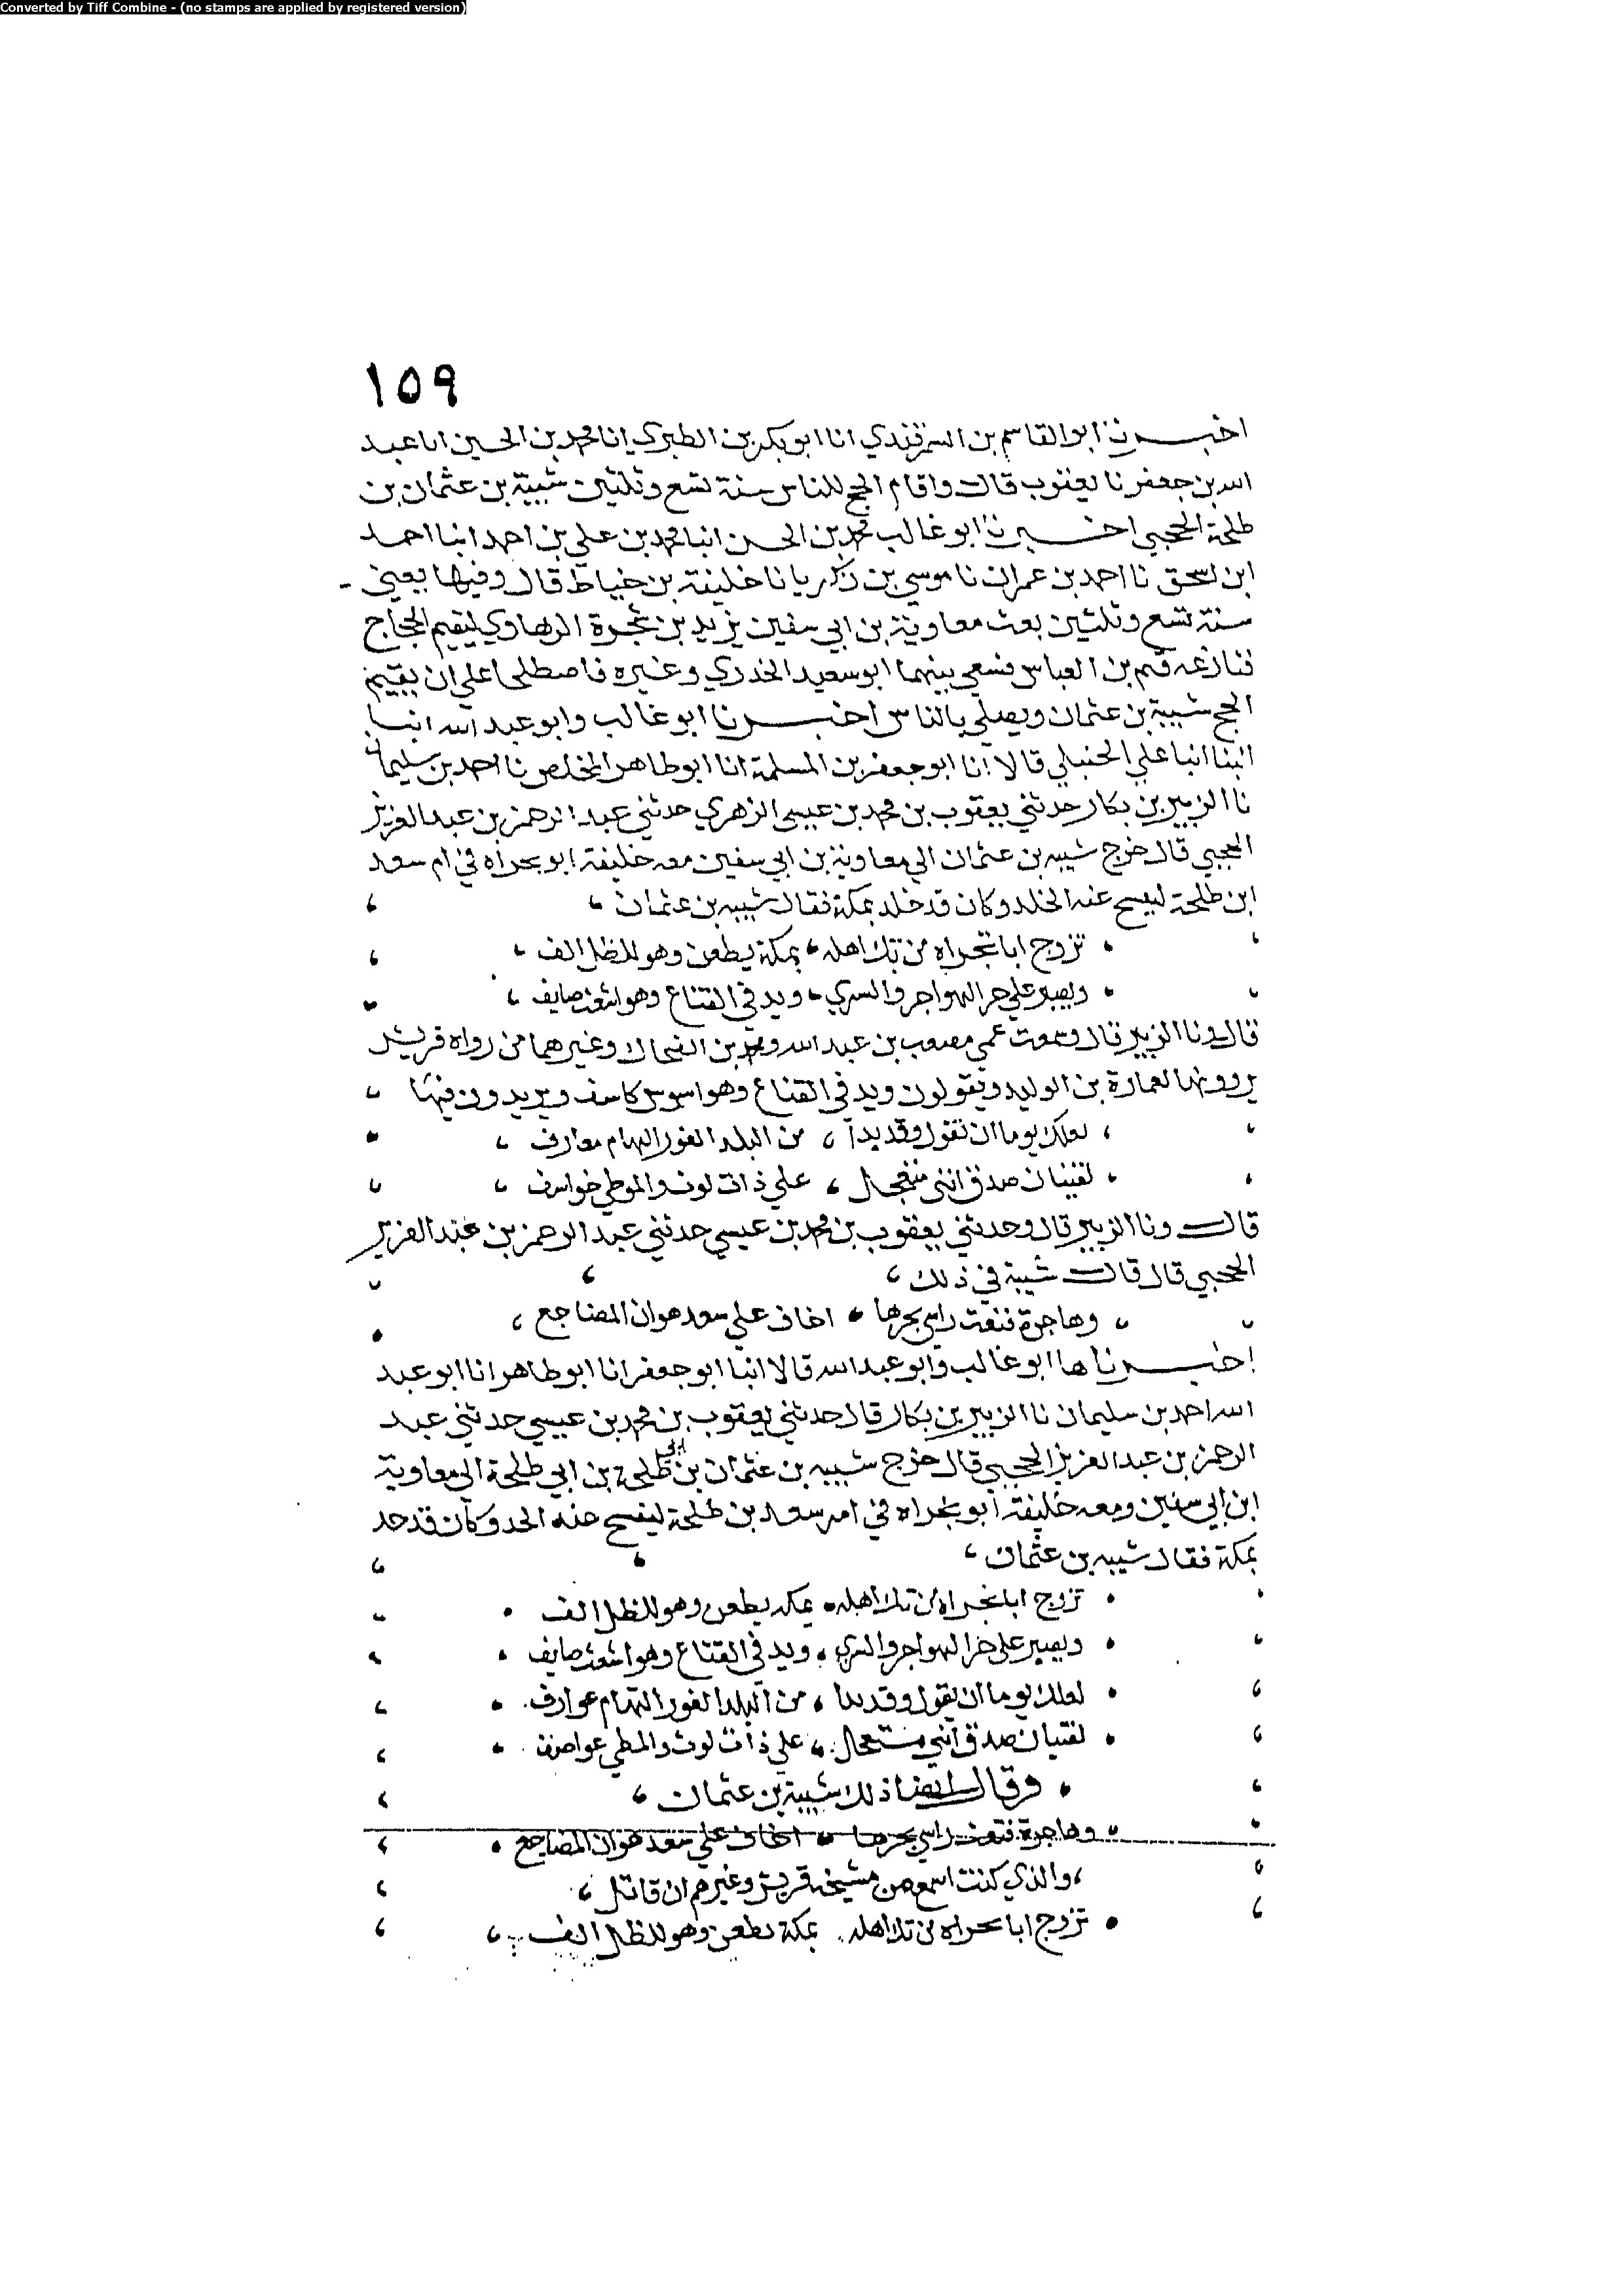 Converted by Tiff Combine - (no stamps are applied by registered version)
١٥٩
اخبرنا ابو القاسم بن السمرقندي انا ابو بكر بن الطبري انا محمد بن الحسين انا عبد
الله بن جعفر نا يعقوب قال واقام الحج للناس سنة تسع وثلثين شيبة بن عثمان بن
طلحة الحجبي اخبرنا ابو غالب محمد بن الحسن انبا محمد بن علي بن احمد انبا احمد
ابن اسحق نا احمد بن عمران نا موسي بن زكريا نا خليفة بن خياط قال وفيها يعني -
سنة تسع وثلثين بعث معاوية بن ابي سفين يزيد بن شجرة الرهاوي ليقيم الحجاج
فنازعه قثم بن العباس فسعي بينهما ابو سعيد الخدري وغيره فاصطلحا علي ان يقيم
الحج شيبة بن عثمان ويصلي بالناس اخبرنا ابو غالب وابو عبد الله انبا
ابنا انبا علي الحنبلي قالا انا ابو جعفر بن المسلمة انا ابو طاهر المخلص نا احمد بن سليمان
نا الزبير بن بكار حدثني يعقوب بن محمد بن عيسي الزهري حدثني عبد الرحمن بن عبد العزيز
الحجبي قال خرج شيبه بن عثمان الي معاوية بن ابي سفين معه خليفة ابو بجراه في ام سعد
ابن طلحة ليسح عنه الخلد وكان قد خلد بمكة فقال شيبه بن عثمان
تزوج ابا تجراه من تك اهله بمكة يطعن وهو للظل الف
ويصبر علي حر الهواجر والسري ويد في القناع وهو اشعث صايف
قال ونا الزبير قال وسمعت عمي مصعب بن عبد الله ومحمد بن الضحاك وغيرهما من رواه قريش
يروونها لعمارة بن الوليد ويقولون ويد في القناع وهو اسوس كاسف ويريدون فيها
لعلك يوما ان تقول وقد بدا من البلد الغور التهام معارف
لفتيان صدق انني متعجل علي ذات لوث والموطي خواسف
قال ونا الزبير قال وحدثني يعقوب بن محمد بن عيسي حدثني عبد الرحمن بن عبد العزيز
الحجبي قال قال شيبة في ذلك
وهاجرة قنعت راسي بحرها اخاف علي سعد هوان المضاجع
اخبرناها ابو غالب وابو عبد الله قالا انبا ابو جعفر انا ابو طاهر انا ابو عبد
الله احمد بن سليمان نا الزبير بن بكار قال حدثني يعقوب بن محمد بن عيسي حدثني عبد
الرحمن بن عبد العزيز الحجبي قال خرج شيبه بن عثمان بن ابي طلحة بن ابي طلحة الي معاوية
ابن ابي سفين ومعه خليفة ابو بجراه في امر سعد بن طلحة ليفسح عنه الحد وكان قد حد
بمكة فقال شيبه بن عثمان
تزوج ابا بجراه من تك اهله بمكه يطعن وهو للظل الف
ويصبر علي حر الهواجر والسري ويد في القناع وهو اشعث صايف
لعلك يوما ان تقول وقد بدا من البلد الغور التهام عوارف
لفتيان صدق انني متعجل علي ذات لوث والمطي عواصف
وقال ايضا ذلك شيبة بن عثمان
وهاجرة قنعت راسي بحرها اخاف علي سعد هوان المضاجع
والذي كنت اسمع من مشيخه قريش وغيرهم ان قاتل
تزوج ابا بحراه من تك اهله بمكة يطعن وهو للظل الف